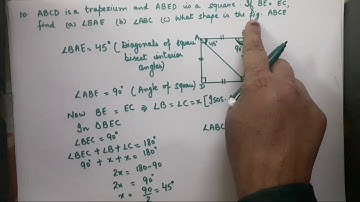 10. ABCD is a trapezium and ABED is a square If BE = EC,
find (a) ∠BAE (b) ∠ABC (c) What shape is the fig. ABCE
∠BAE = 45° (Diagonals of square
bisect interior
angles)
A
45°
90°
∠ABE = 90° (Angle of square)
D
Now BE = EC ⇒ ∠B = ∠C = x [Isos.
In ΔBEC
∠BEC = 90°
∠ABC
∠BEC + ∠B + ∠C = 180°
90° + x + x = 180°
2x = 180-90
2x = 90°
x = 90/2 = 45°